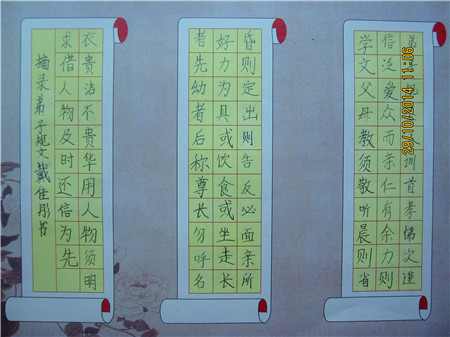 弟子规圣人训首孝悌次谨
信泛爱众而亲仁有余力则
学文父母教须敬听晨则省
昏则定出则告反必面亲所
好力为具或饮食或坐走长
者先幼者后称尊长勿呼名
衣贵洁不贵华用人物须明
求借人物及时还信为先
摘录弟子规文戴佳彤书
29/10/2014 11:06